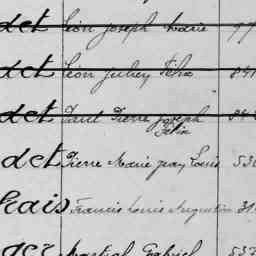 det Léon Joseph Marie 97
det Léon Julien Félix 841
det Paul Pierre Joseph
Félix
det Pierre Marie Jean Louis 530
kais Francis Louis Augustin 31
ger Martial Gabriel 537